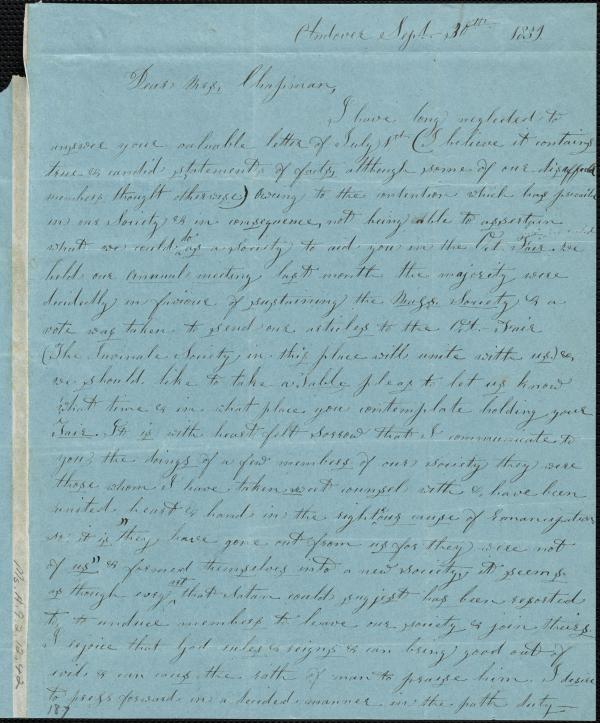 Andover Sept. 30th 1839
Dear Mrs. Chapman,
I have long neglected to
answer your valuable letter of July 1st (I believe it contains
true & candid statements of facts, although some of our disaffected
members thought otherwise) Owing to the contention which has prevailed
in our Society & in consequence, not being able to assertain
what we could do as a society to aid you in the Oct. Fair. We
held our annual meeting last month the majority were
dicidedly in faviour of sustaining the Mass. Society & a
vote was taken to send our articles to the Oct. Fair
(The Juvinale Society in this place will unite with us) &
we should like to take a table pleas to let us know
what time & in what place you contemplate holding your
Fair. It is with heart felt sorrow that I communicate to
you, the doings of a few members of our society they were
those whom I have taken sweet counsel with & have been
united heart & hand in the righteous cause of Emancipation
it is "they have gone out from us for they were not
of us" & formed themselves into a new society, it seems
as though every art that Satan could sugjest has been resorted
to, to induce members to leave our society & join theirs
I rejoice that God rules & reigns & can bring good out of
evil & can cause the rath of man to praise him. I desire
to press forward in a decided manner in the path duty
187
Ms.A.9.2.12.42